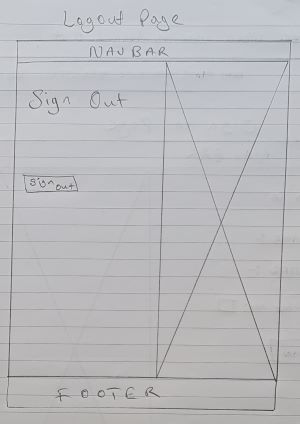 Logout Page
NAVBAR
Sign Out
Sign out
FOOTER